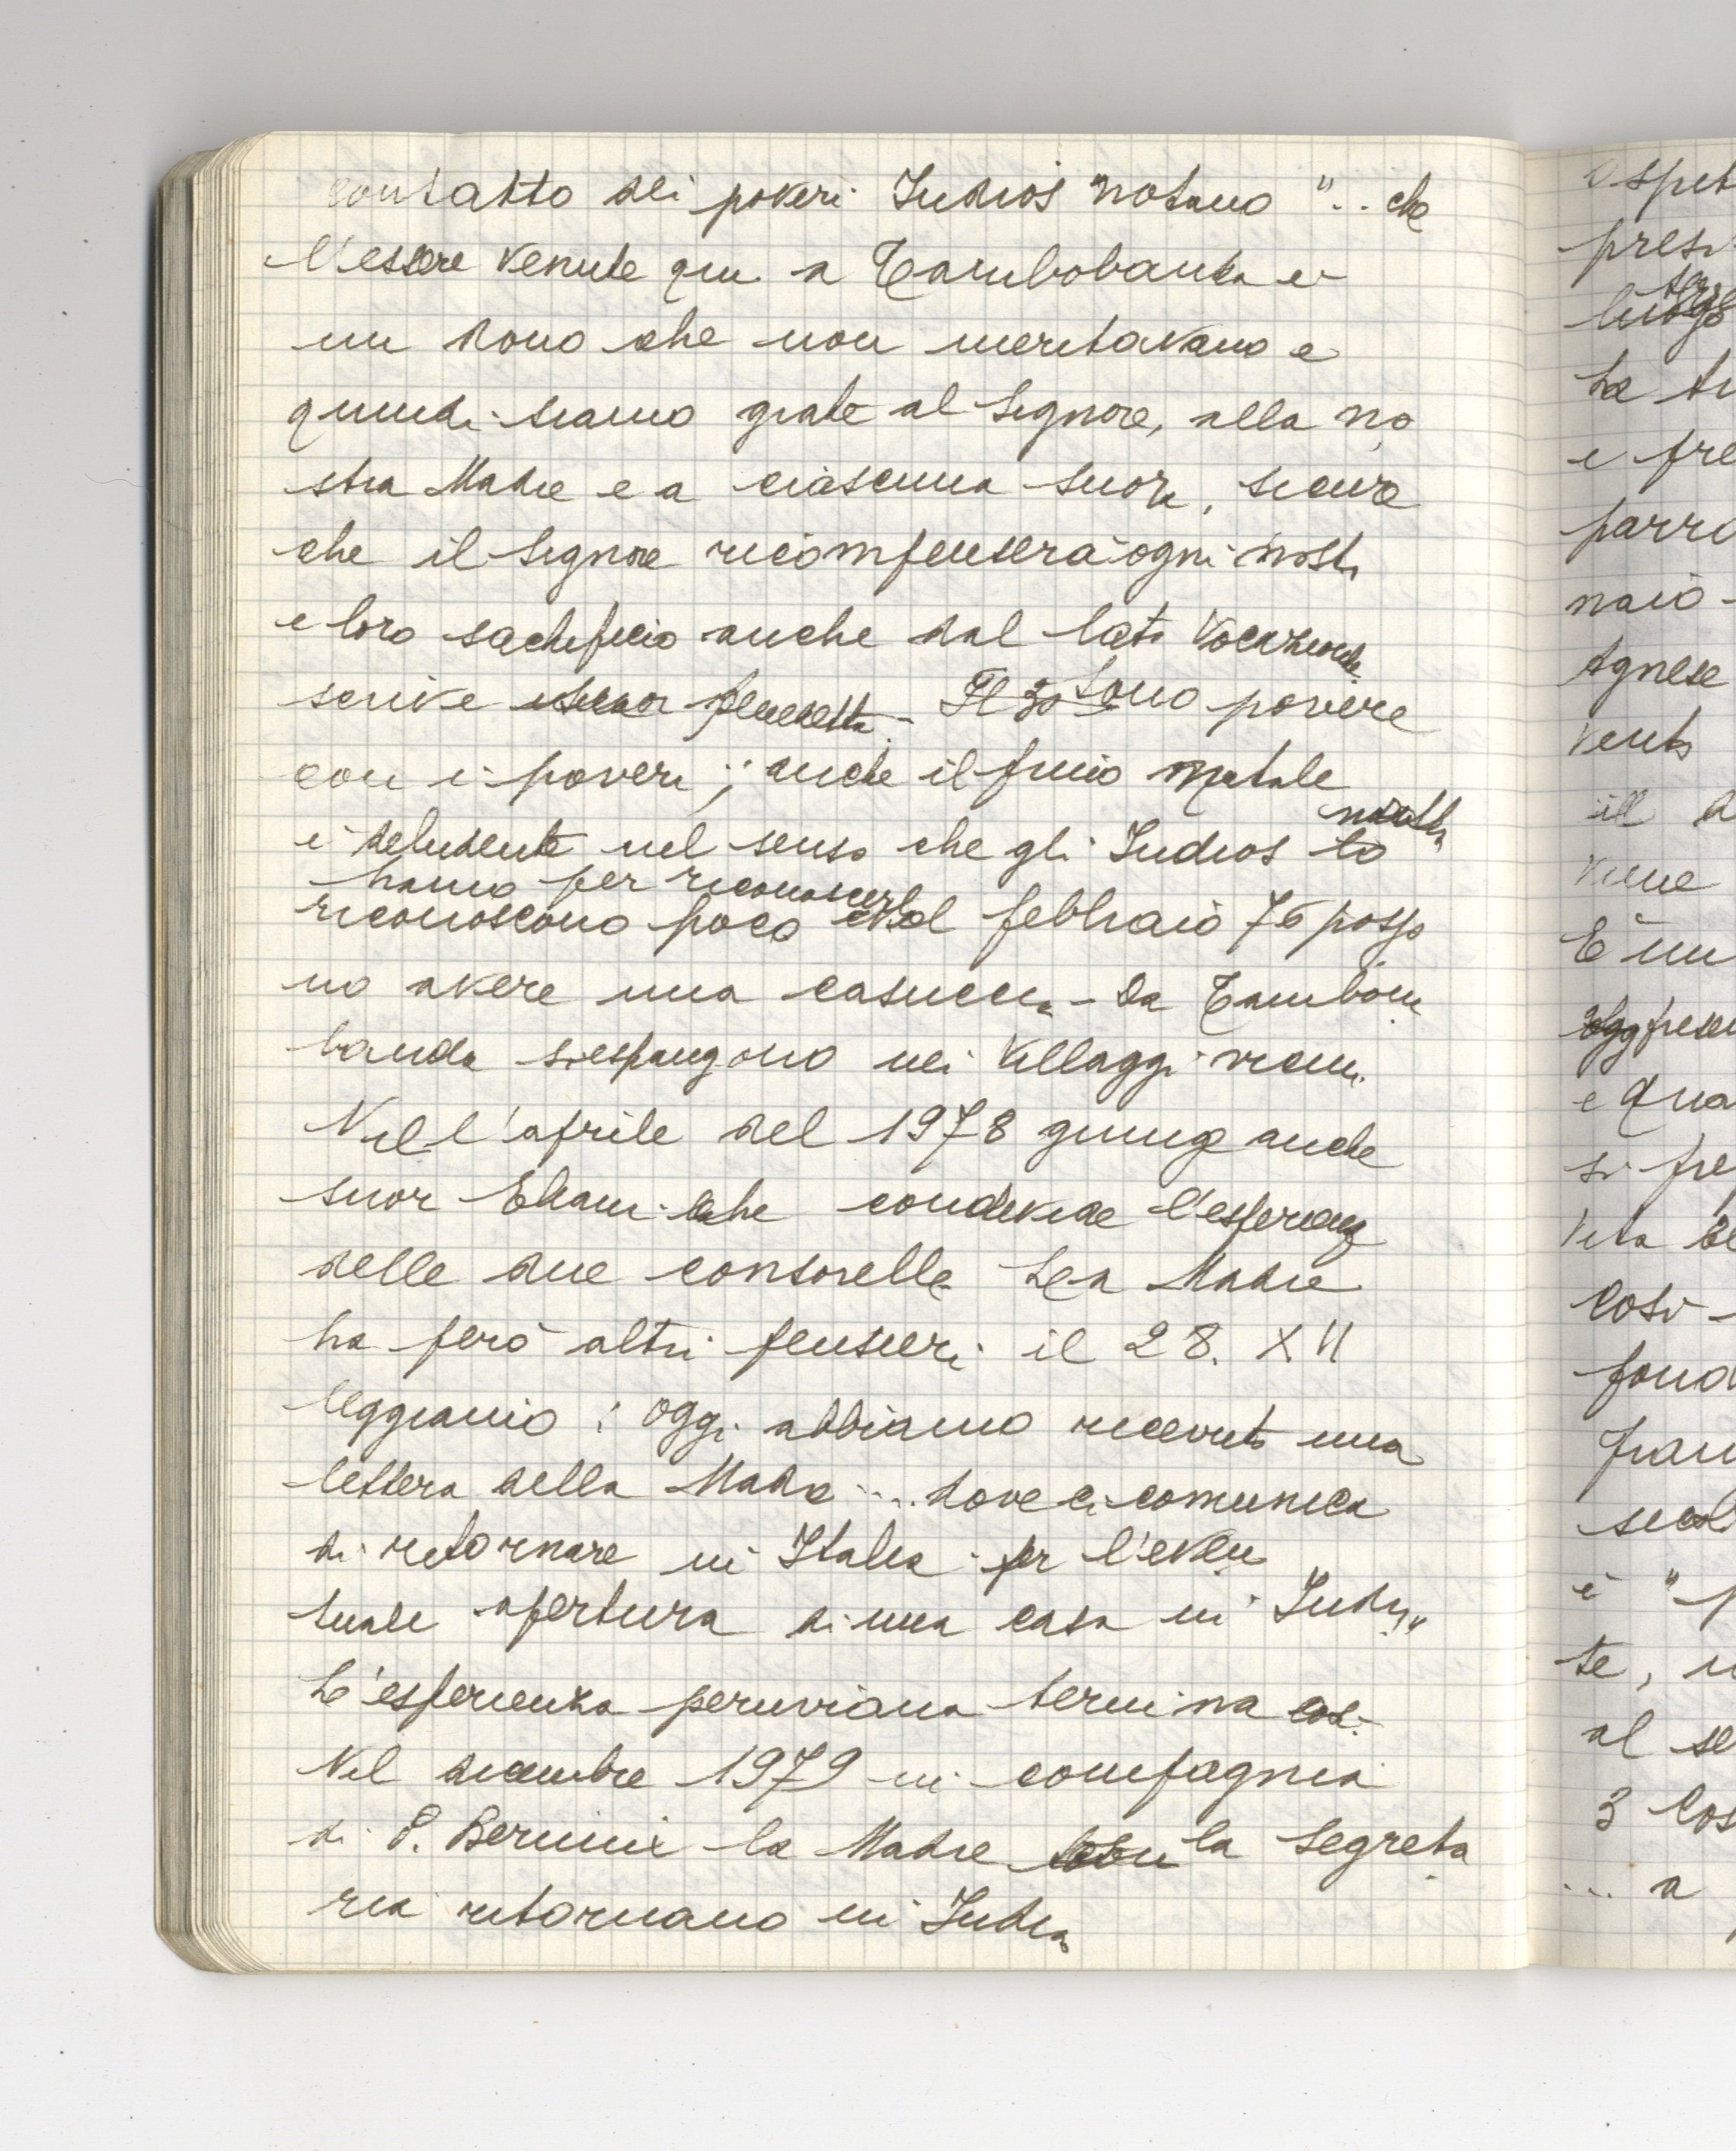 contatto dei poveri Indios "notano ".. che
l'essere venute qui a Tambobamba e'
un dono che non meritavano e
quindi siamo grate al Signore, alla no
stra Madre e a ciascuna suora, sicure
che il Signore ricompenserà ogni nostro
e loro sachificio anche dal lato vocazionale
scrive suor Il 30 Sono povere
con i poveri; anche il Natale
è deludente nel senso che gli Indios lo
hanno per riconoscerlo
riconoscono poco Nel febbraio 76 posso
no avere una casuccia - Da Tambom
banda si espangono nei villaggi vicini.
Nell'aprile del 1978 giunge anche
suor che condivide l'esperienza
delle due consorelle La Madre
ha però altri pensieri il 28. XII
leggiamo: oggi abbiamo ricevuto una
lettera della Madre .... dove ci comunica
di ritornare in Italia per l'even
tuale apertura di una casa in India"
L'esperienza peruviana termina così.
Nel dicembre 1979 in compagnia
di P. Bernini la Madre la segreta
ria ritornano in India
ospet
presi
e fre
parro
naio-
Agnese
vento
il
viene
È un
e qua
si pre
vita
Così -
fond
te,
al se
3
... a